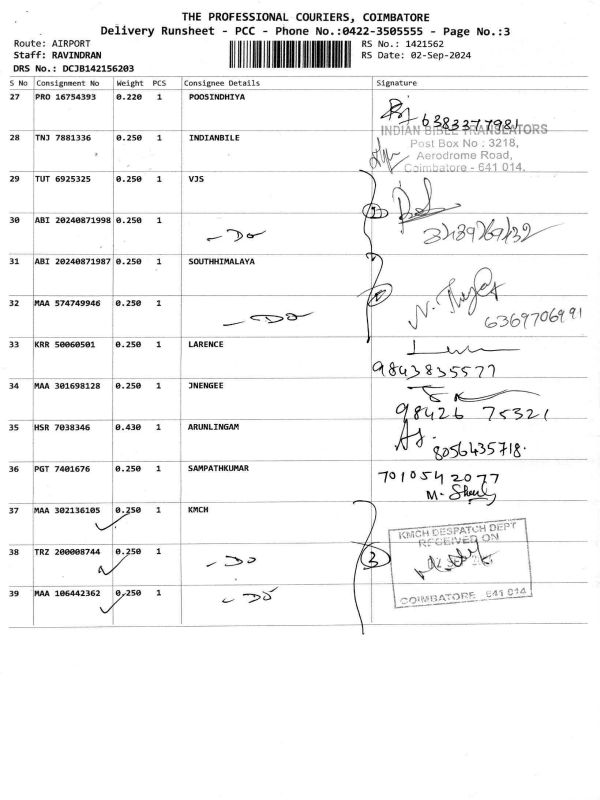 THE PROFESSIONAL COURIERS, COIMBATORE
Delivery Runsheet - PCC - Phone No.:0422-3505555 - Page No.:3
Route: AIRPORT RS No.: 1421562
Staff: RAVINDRAN RS Date: 02-Sep-2024
DRS No.: DCJB142156203
S No Consignment No Weight PCS Consignee Details Signature
27 PRO 16754393 0.220 1 POOSINDHIYA
6383377981
28 TNJ 7881336 0.250 1 INDIANBILE
INDIAN BIBLE TRANSLATORS
Post Box No : 3218,
Aerodrome Road,
Coimbatore - 641 014.
29 TUT 6925325 0.250 1 VJS
30 ABI 20240871998 0.250 1
- Do
31 ABI 20240871987 0.250 1 SOUTHHIMALAYA
32 MAA 574749946 0.250 1
- Do
6369706991
33 KRR 50060501 0.250 1 LARENCE
9843835577
34 MAA 301698128 0.250 1 JNENGEE
98426 75321
35 HSR 7038346 0.430 1 ARUNLINGAM
8056435718.
36 PGT 7401676 0.250 1 SAMPATHKUMAR
7010542077
37 MAA 302136105 0.250 1 KMCH
KMCH DESPATCH DEPT
RECEIVED ON
38 TRZ 200008744 0.250 1 - Do
3
39 MAA 106442362 0.250 1 - Do
COIMBATORE 641 014